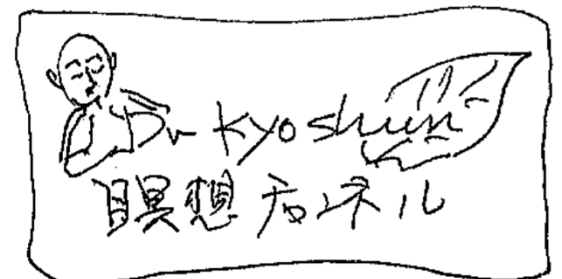 Dr Kyoshun
瞑想チャンネル